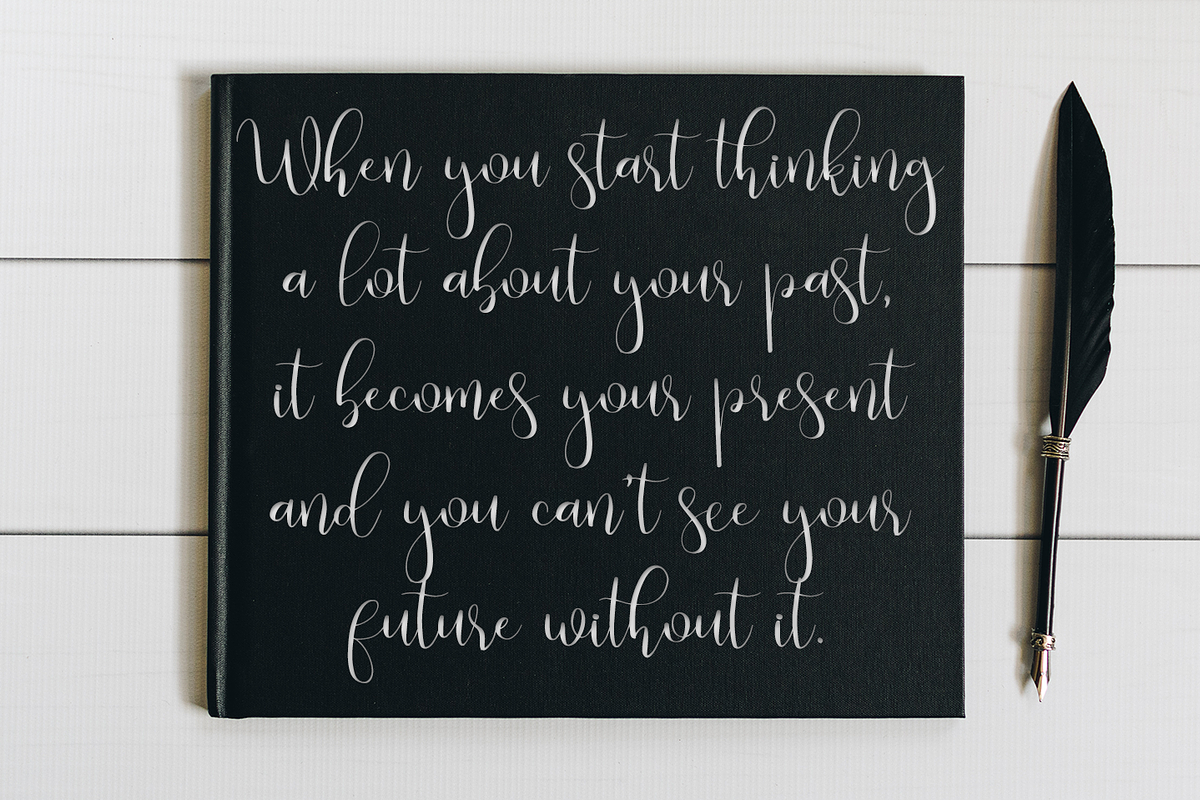 When you start thinking
a lot about your past,
it becomes your present
and you can't see your
future without it.